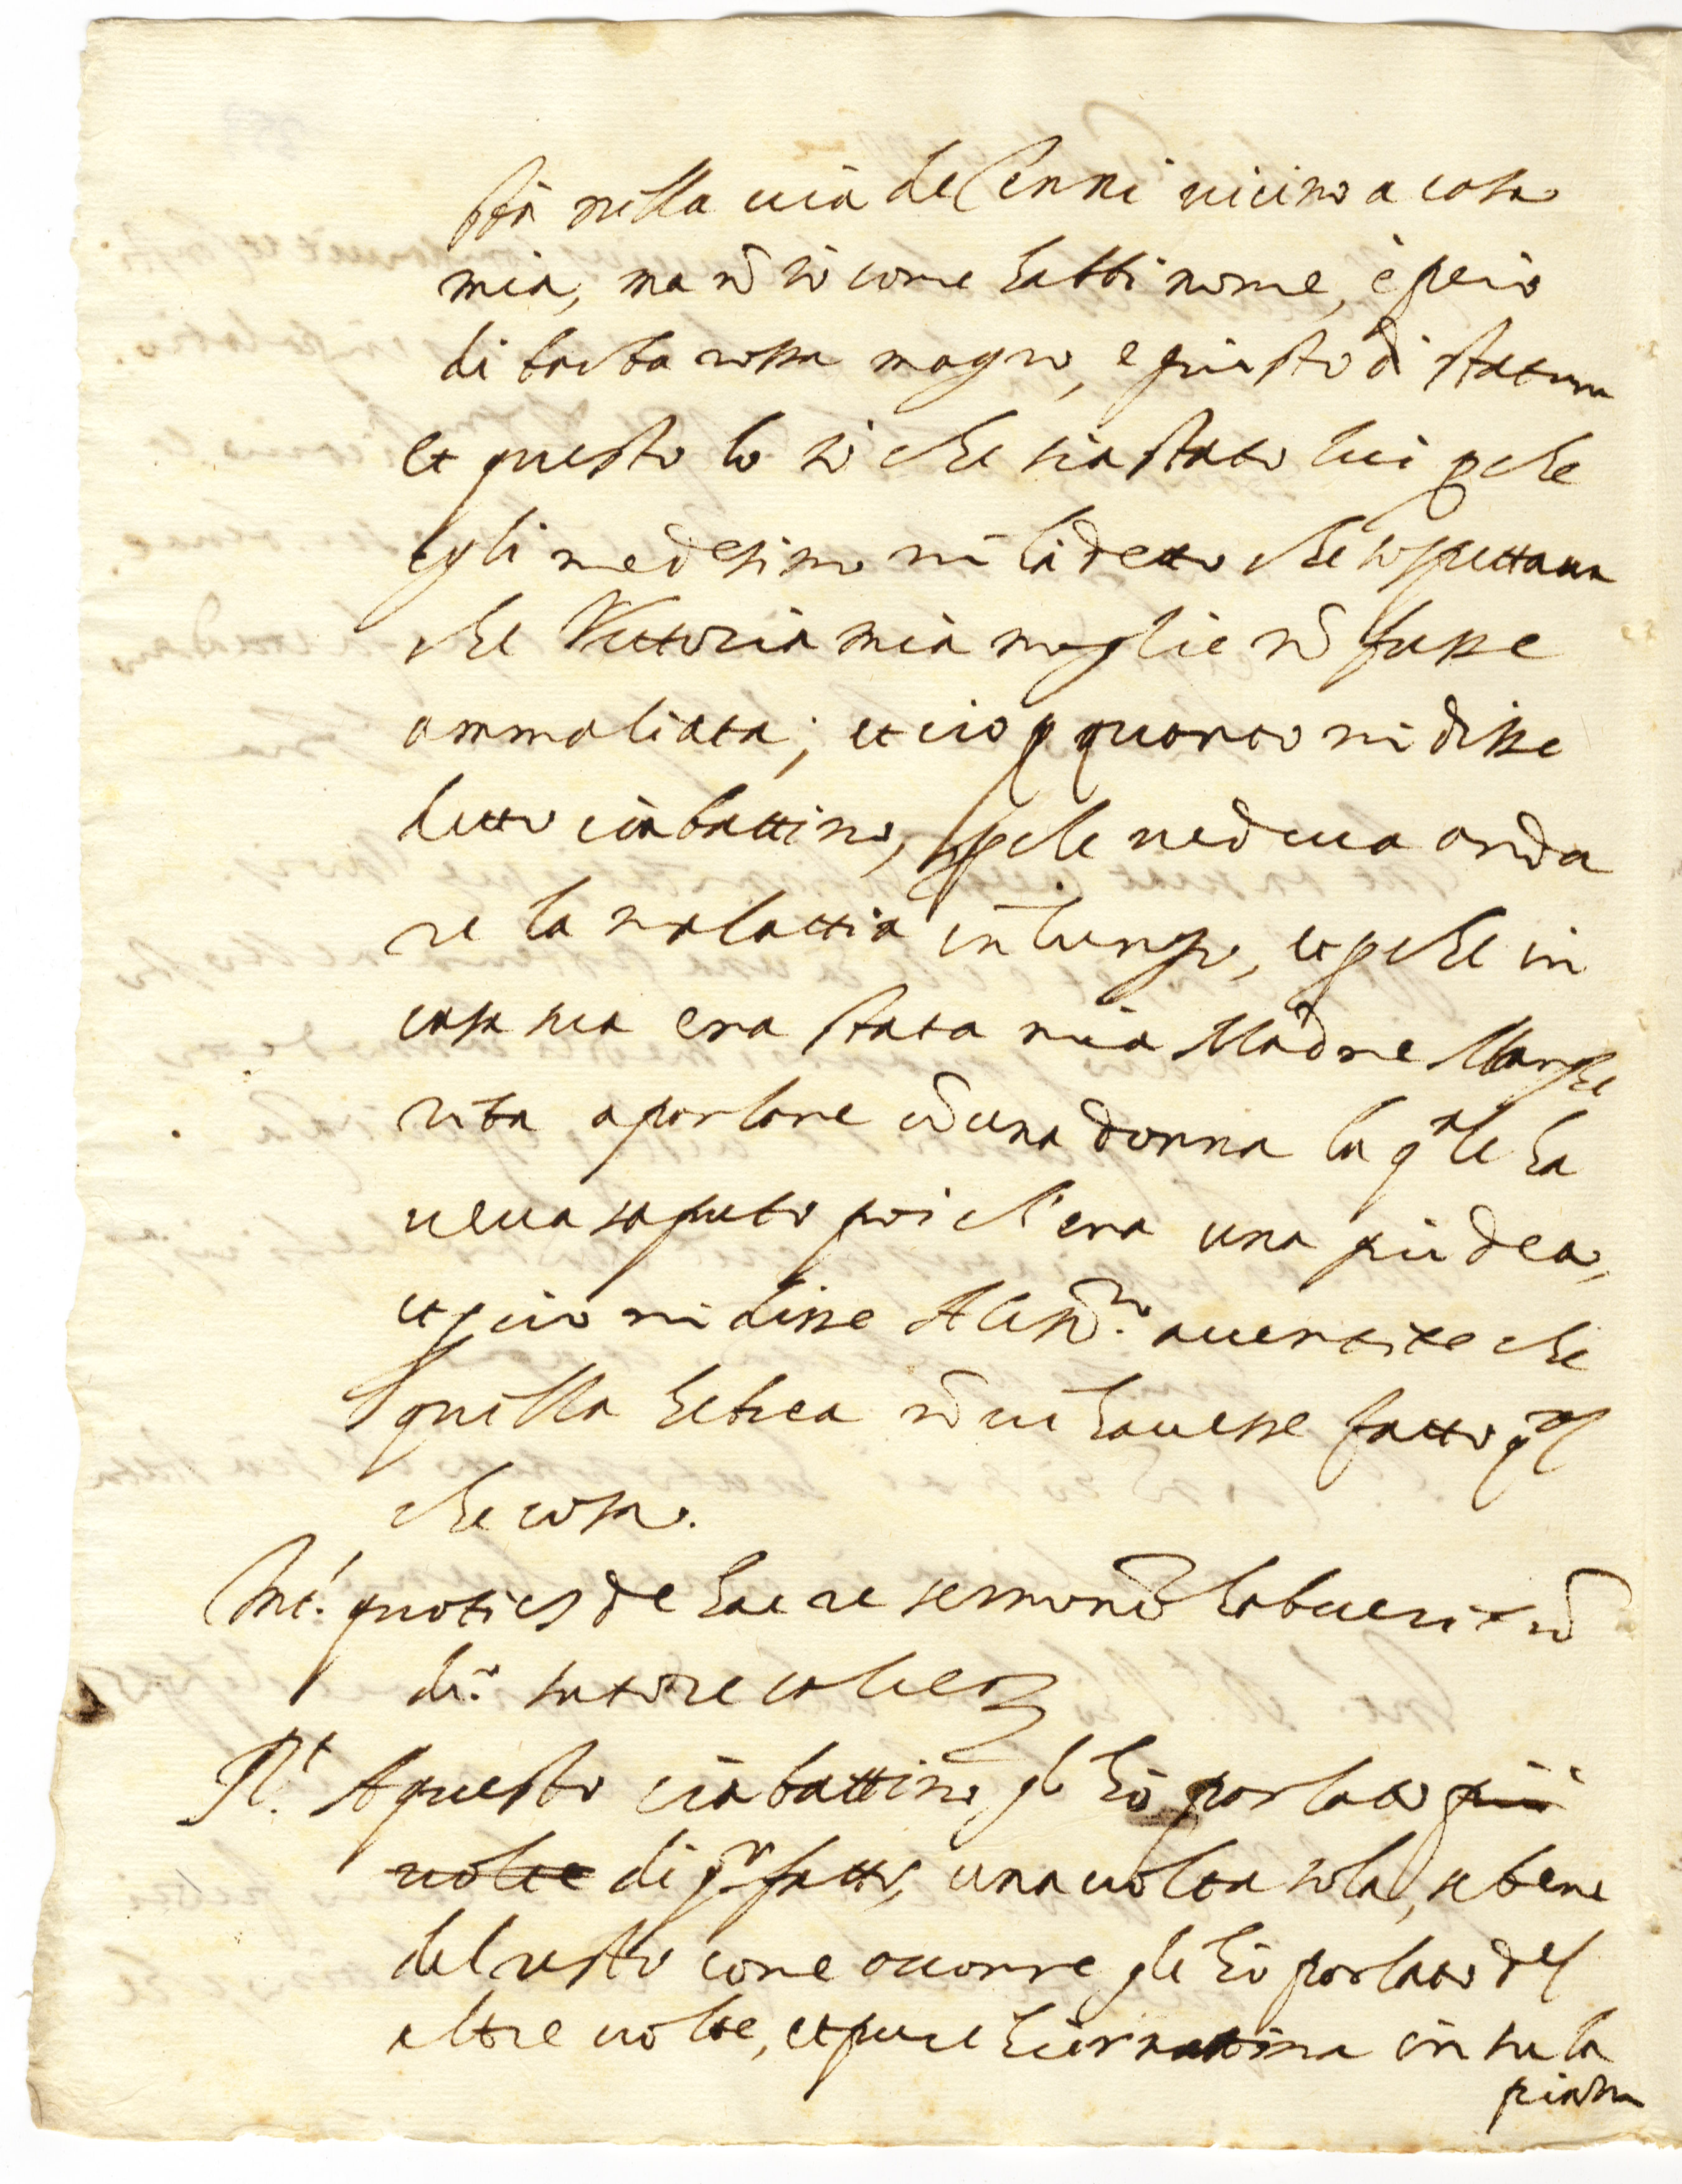 stà nella uia de Cenni uicino a casa
mia, ma nõ sò come habbi nome, è però
di barba rossa magro, e giusto di statura
et questo lo sò che sia stato lui pche
egli medesimo mi hà detto che sospettaua
che Vittoria mia moglie nõ fusse
ammaliata; et ciò p quanto mi disse
detto ciabattino, pche uedeua anda
re la malattia in lungo, et pche in
casa sua era stata mia Madre Marghe
rita a parlare cõ una donna la qale ha
ueua saputo poi ch'era una giudea,
et pciò mi disse Alesro. auertite che
quella hebrea nõ ui hauesse fatto ql
che cosa.
Int. quoties de hac re sermonẽ habuerit cũ
do. sutore calceor
Rt. A questo ciabattino gli hò parlato più
uolte di qto fatto, una uolta sola, se bene
del resto come occorre gli hò parlato del
altre uolte, et pure hiermattina in su la
piazza